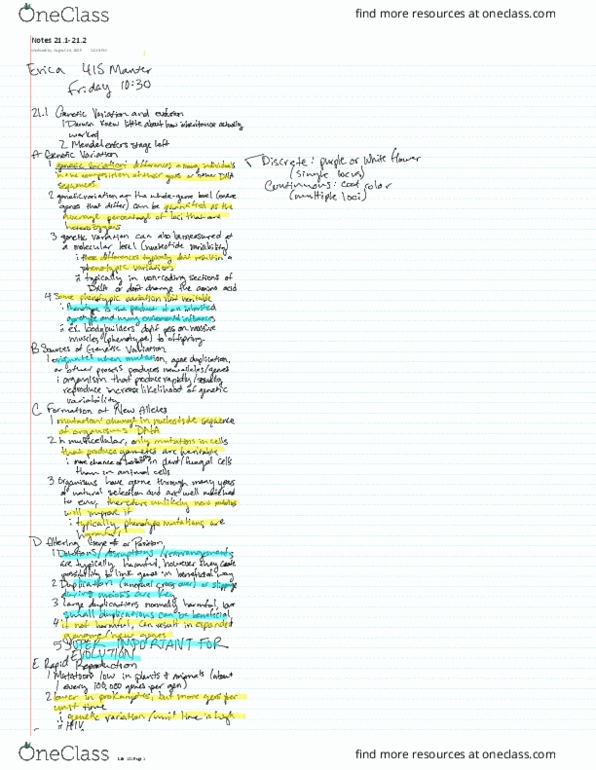 OneClass
find more resources at oneclass.com
Notes 21.1-21.2
Erica 415 Manter
Friday 10:30
21.1 Genetic Variation and evolution
1 Darwin knew little about how inheritance actually
worked
2 Mendel enters stage left
A Genetic Variation
1 genetic variation: differences among individuals
in the composition of their genes or other DNA
sequences
Discrete: purple or white flower
(single locus)
Continuous: coat color
(multiple loci)
2 genetic variation at the whole-gene level (
genes that differ) can be quantified as the
average percentage of loci that are
heterozygous
3 genetic variation can also be measured at
a molecular level (nucleotide variability)
i these differences typically don't result in a
phenotypic variation
ii typically in non-coding sections of
DNA or don't change the amino acid
4 Some phenotypic variation isn't heritable
i Phenotype is the product of an inherited
genotype and many environmental influences
ii ex. bodybuilders don't pass on massive
muscles (phenotype) to offspring
B Sources of Genetic Variation
1 originates when mutation, gene duplication,
or other process produces new alleles/genes
i organism that produce rapidly/sexually
reproduce increase likelihood of genetic
variability
C Formation of New Alleles
1 mutation: change in nucleotide sequence
of organisms' DNA
2 In multicellular, only mutations in cells
that produce gametes are heritable
i more chance of in plant/fungal cells
than in animal cells
3 Organisms have gone through many years
of natural selection and are well matched
to env, therefore unlikely new mutations
will improve it
i typically, phenotype mutations are
harmful
D Altering Gene # or Position
1 Deletions/disruptions/rearrangements
are typically harmful, however they create
possibility to link genes in beneficial way
2 Duplication (unequal cross over) or slippage
during meiosis are key
3 large duplications normally harmful, but
small duplications can be beneficial
4 if not harmful, can result in expanded
genome/new genes
5 SUPER IMPORTANT FOR
EVOLUTION
E Rapid Reproduction
1 Mutations low in plants + animals (about
1 every 100,000 genes per gen)
2 lower in prokaryotes, but more gens per
unit time
i genetic variation/unit time is high
ii HIV
OneClass
find more resources at oneclass.com